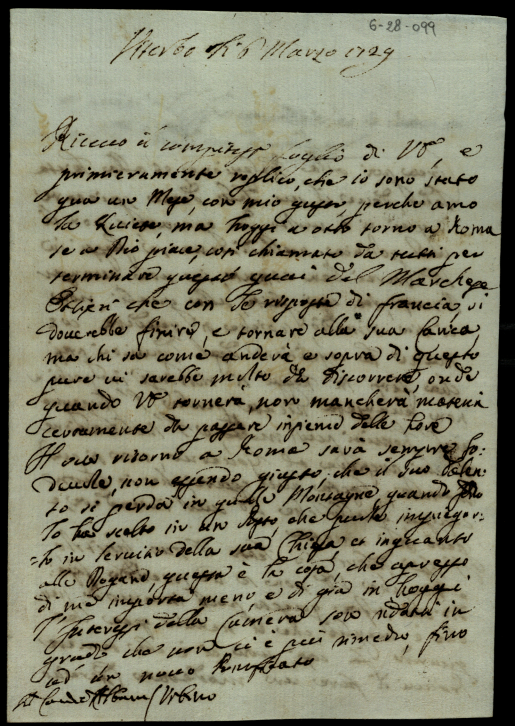 6-28-099
Viterbo li 6 Marzo 1729
Ricevo il compitiss foglio di VS, e
primieramente replico, che io sono stato
qua un Mese, con mio gusto, perche amo
la quiete, ma hoggi a otto torno a Roma
se a Dio piace, così chiamato da tutti per
terminare questi guai del Marchese
che con le risposte di francia, si
douerebbe finire, e tornare alla sua carica
ma chi sa come anderà e sopra di questo
pure vi sarebbe molto da discorrere, onde
quando VS tornerà, non mancherà materia
certamente da passare insieme delle hore
Il suo ritorno a Roma sarà sempre lo-
deuole, non essendo giusto, che il suo talen-
to si perda in quelle Montagne, quando
lo ha scelto in un Posto, che puole impiegar-
lo in seruizio della sua Chiesa, et inquanto
alle questa è la cosa, che apresso
di me importa meno, e di già in hoggi
l'Interessi della sono ridotti in
grado che non ci è più rimedio, fino
ad un nuovo Pontificato
Conte Urbino